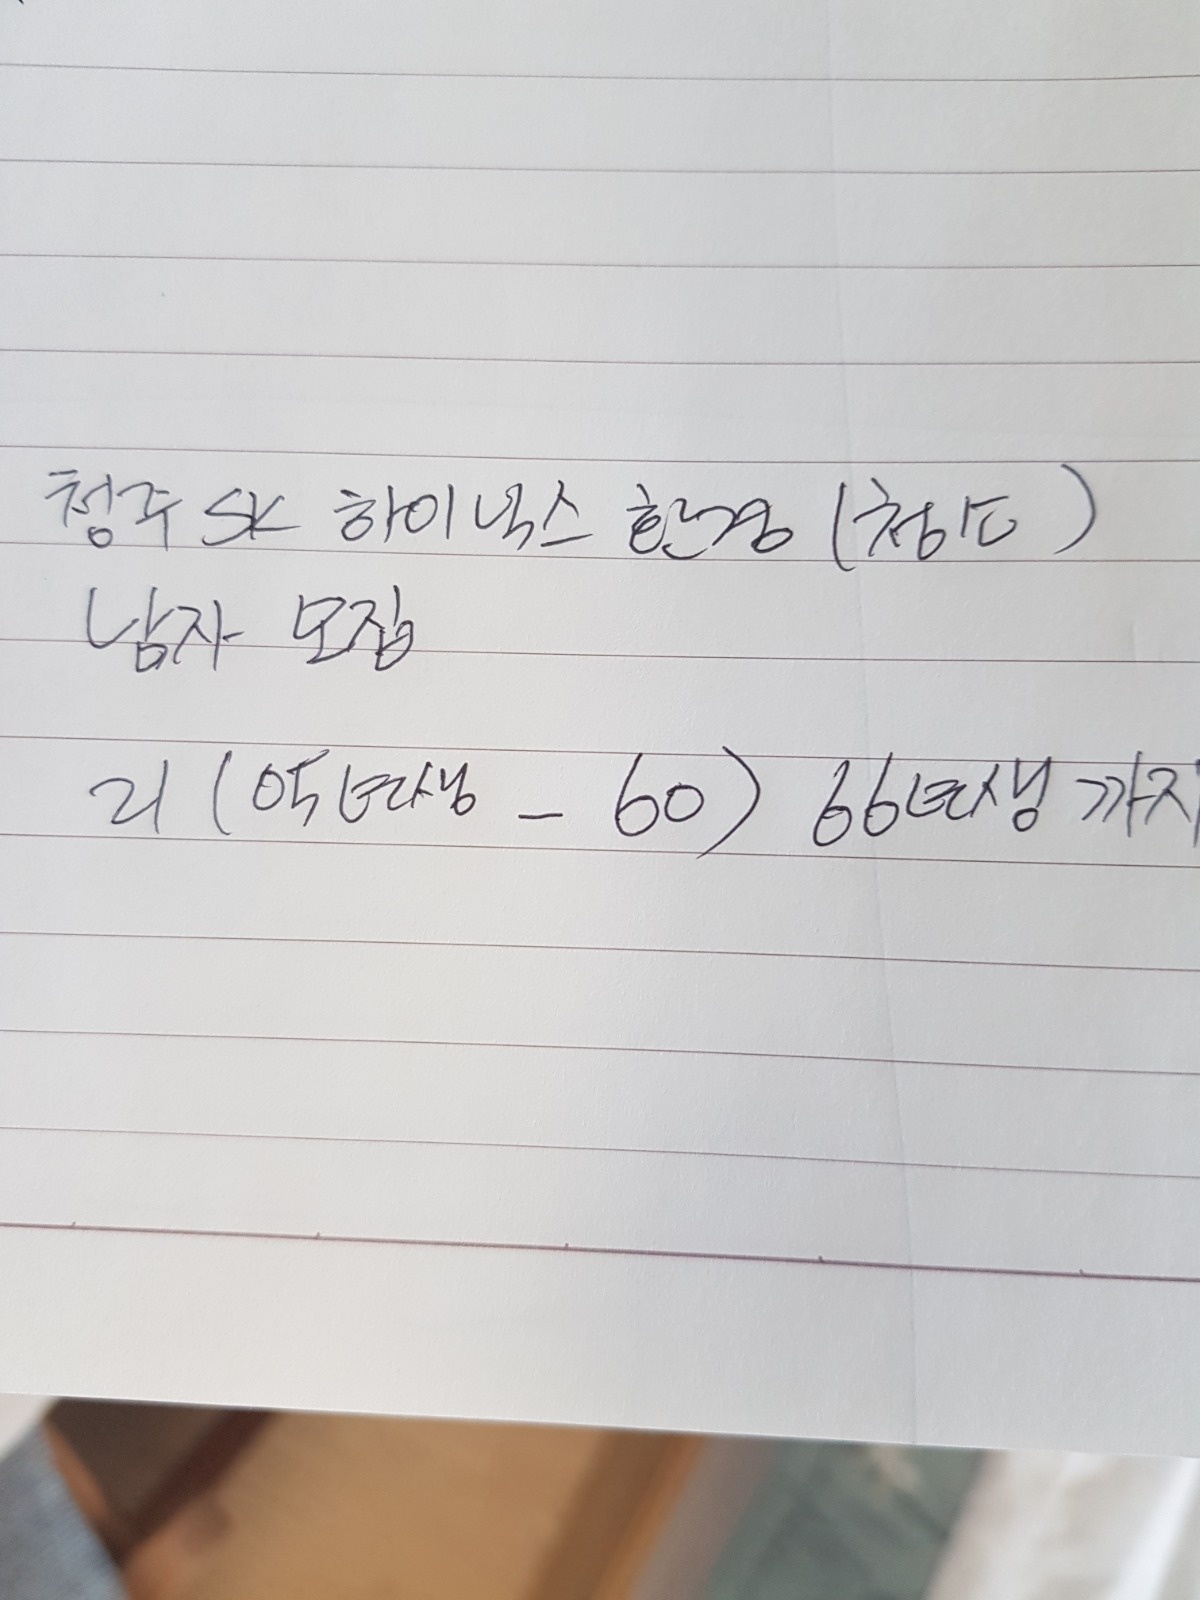 청주 SK 하이닉스 환경 (청소)
남자 모집
21 (05년생 - 60) 66년생 까지